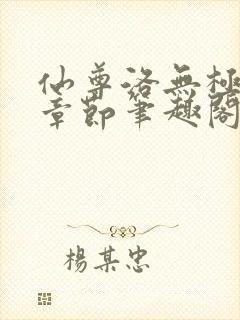 仙尊洛無極
章節筆趣閣
楊某忠